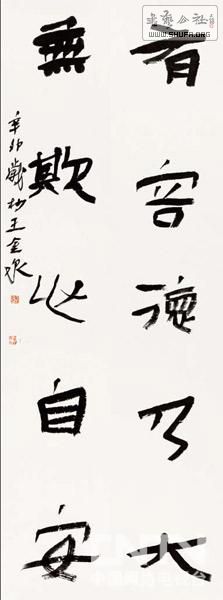 有容德乃大
無欺心自安
辛卯歲杪王金泉
書藝公社
WWW.SHUFA.ORG
CNTV
中国网络电视台